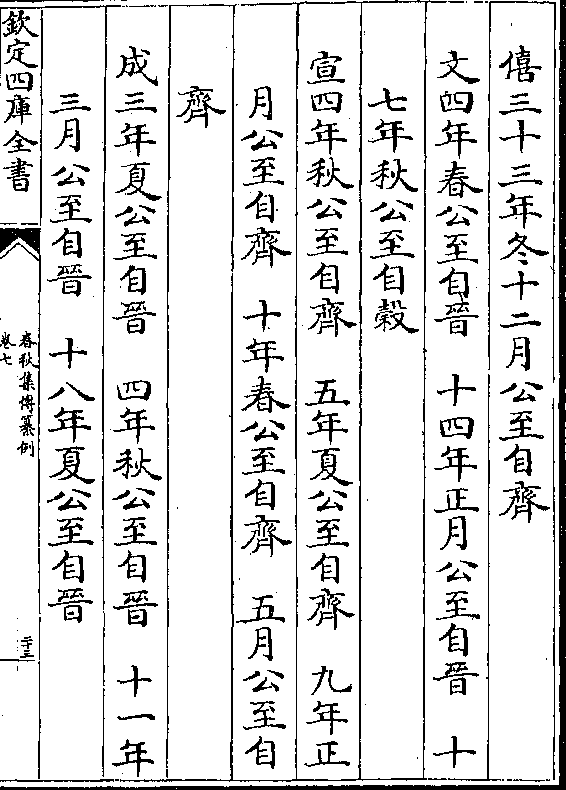 僖三十三年冬十二月公至自齊
文四年春公至自晉　十四年正月公至自晉　十
七年秋公至自穀
宣四年秋公至自齊　五年夏公至自齊　九年正
月公至自齊　十年春公至自齊　五月公至自
齊
成三年夏公至自晉　四年秋公至自晉　十一年
三月公至自晉　十八年夏公至自晉
欽定四庫全書
春秋集傳纂例
卷七
二十三